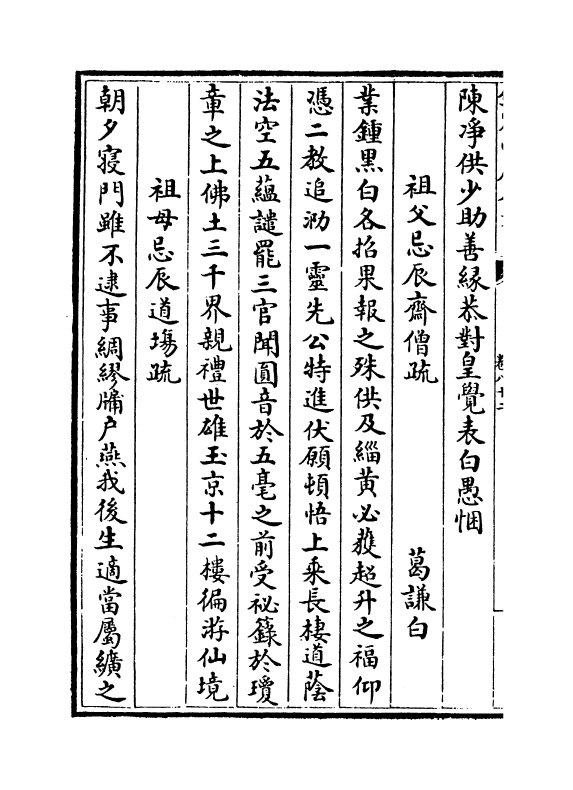 陳浄供少助善緣恭對皇覺表白愚悃
祖父忌辰齋僧疏 葛謙白
業鍾黑白各招果報之殊供及緇黄必蕤超升之福仰
憑二教追泐一靈先公特進伏願頓悟上乘長棲道蔭
法空五蘊譴罷三官聞圓音於五毫之前受祕籙於瓊
章之上佛土三千界親禮世雄玉京十二樓徧游仙境
祖母忌辰道塲疏
朝夕寢門雖不逮事綢繆牖户燕我後生適當屬纊之
卷八十二